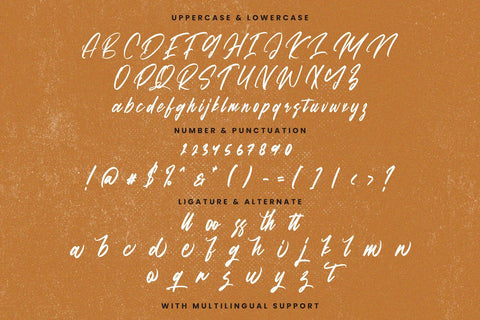 UPPERCASE & LOWERCASE
ABCDEFGHIJKLMN
OPQRSTUVWXYZ
abcdefghijklmnopqrstuvwxyz
NUMBER & PUNCTUATION
1234567890
! @ # $ % ^ & * ( ) - = { } | < > ?
LIGATURE & ALTERNATE
ll oo ss th tt
a b c d e f g h i j k l m n
o q r s w y z t
WITH MULTILINGUAL SUPPORT